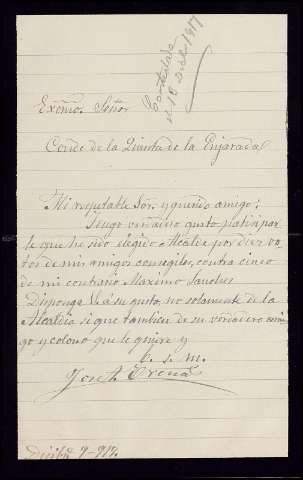 Contestada
el 10 Dicbre 1917
Excmo. Señor
Conde de la Quinta de la Enjarada
Mi respetable Sor. y querido amigo:
Tengo verdadero gusto participar
le que he sido elegido Alcalde por diez vo
tos de mis amigos concejales, contra cinco
de mi contrario Maximo Sanches
Disponga V. a su gusto, no solamente de la
Alcaldia si que tambien de su verdadero ami
go y colono que le quiere y
b. s. m.
José
Dicbre 9-917